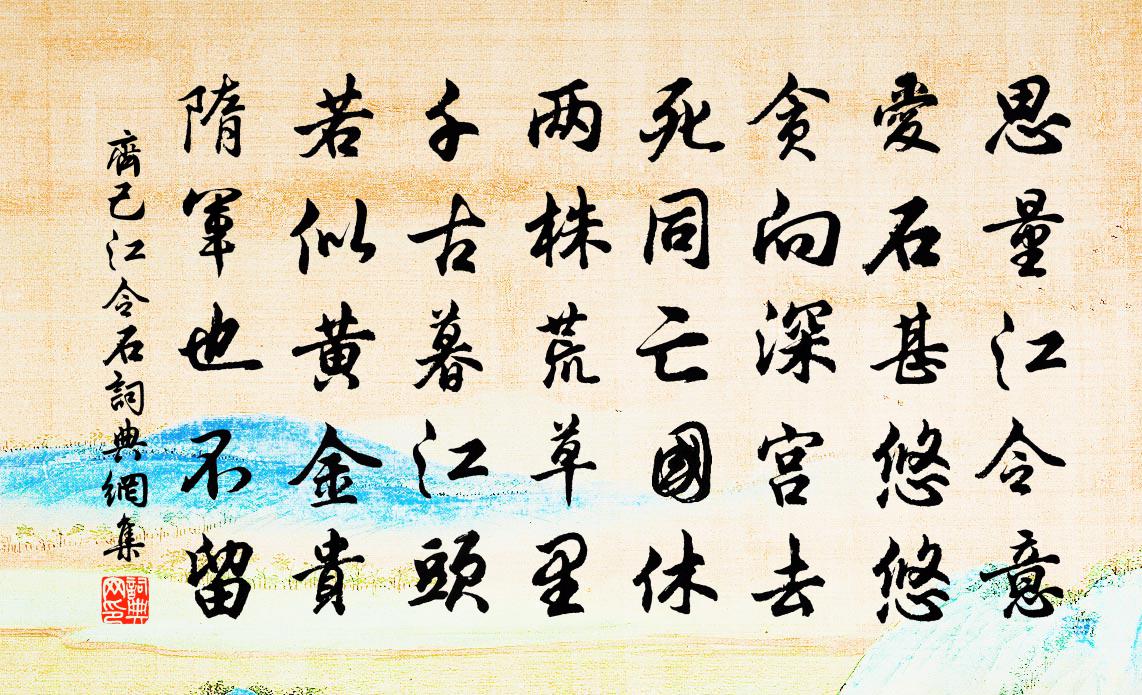 思量江令意
愛石甚悠悠
贪向深宫去
死同亡國休
两株荒草里
千古暮江頭
若似黄金貴
隋軍也不留
齊己江令石詞典網集
詞典網印